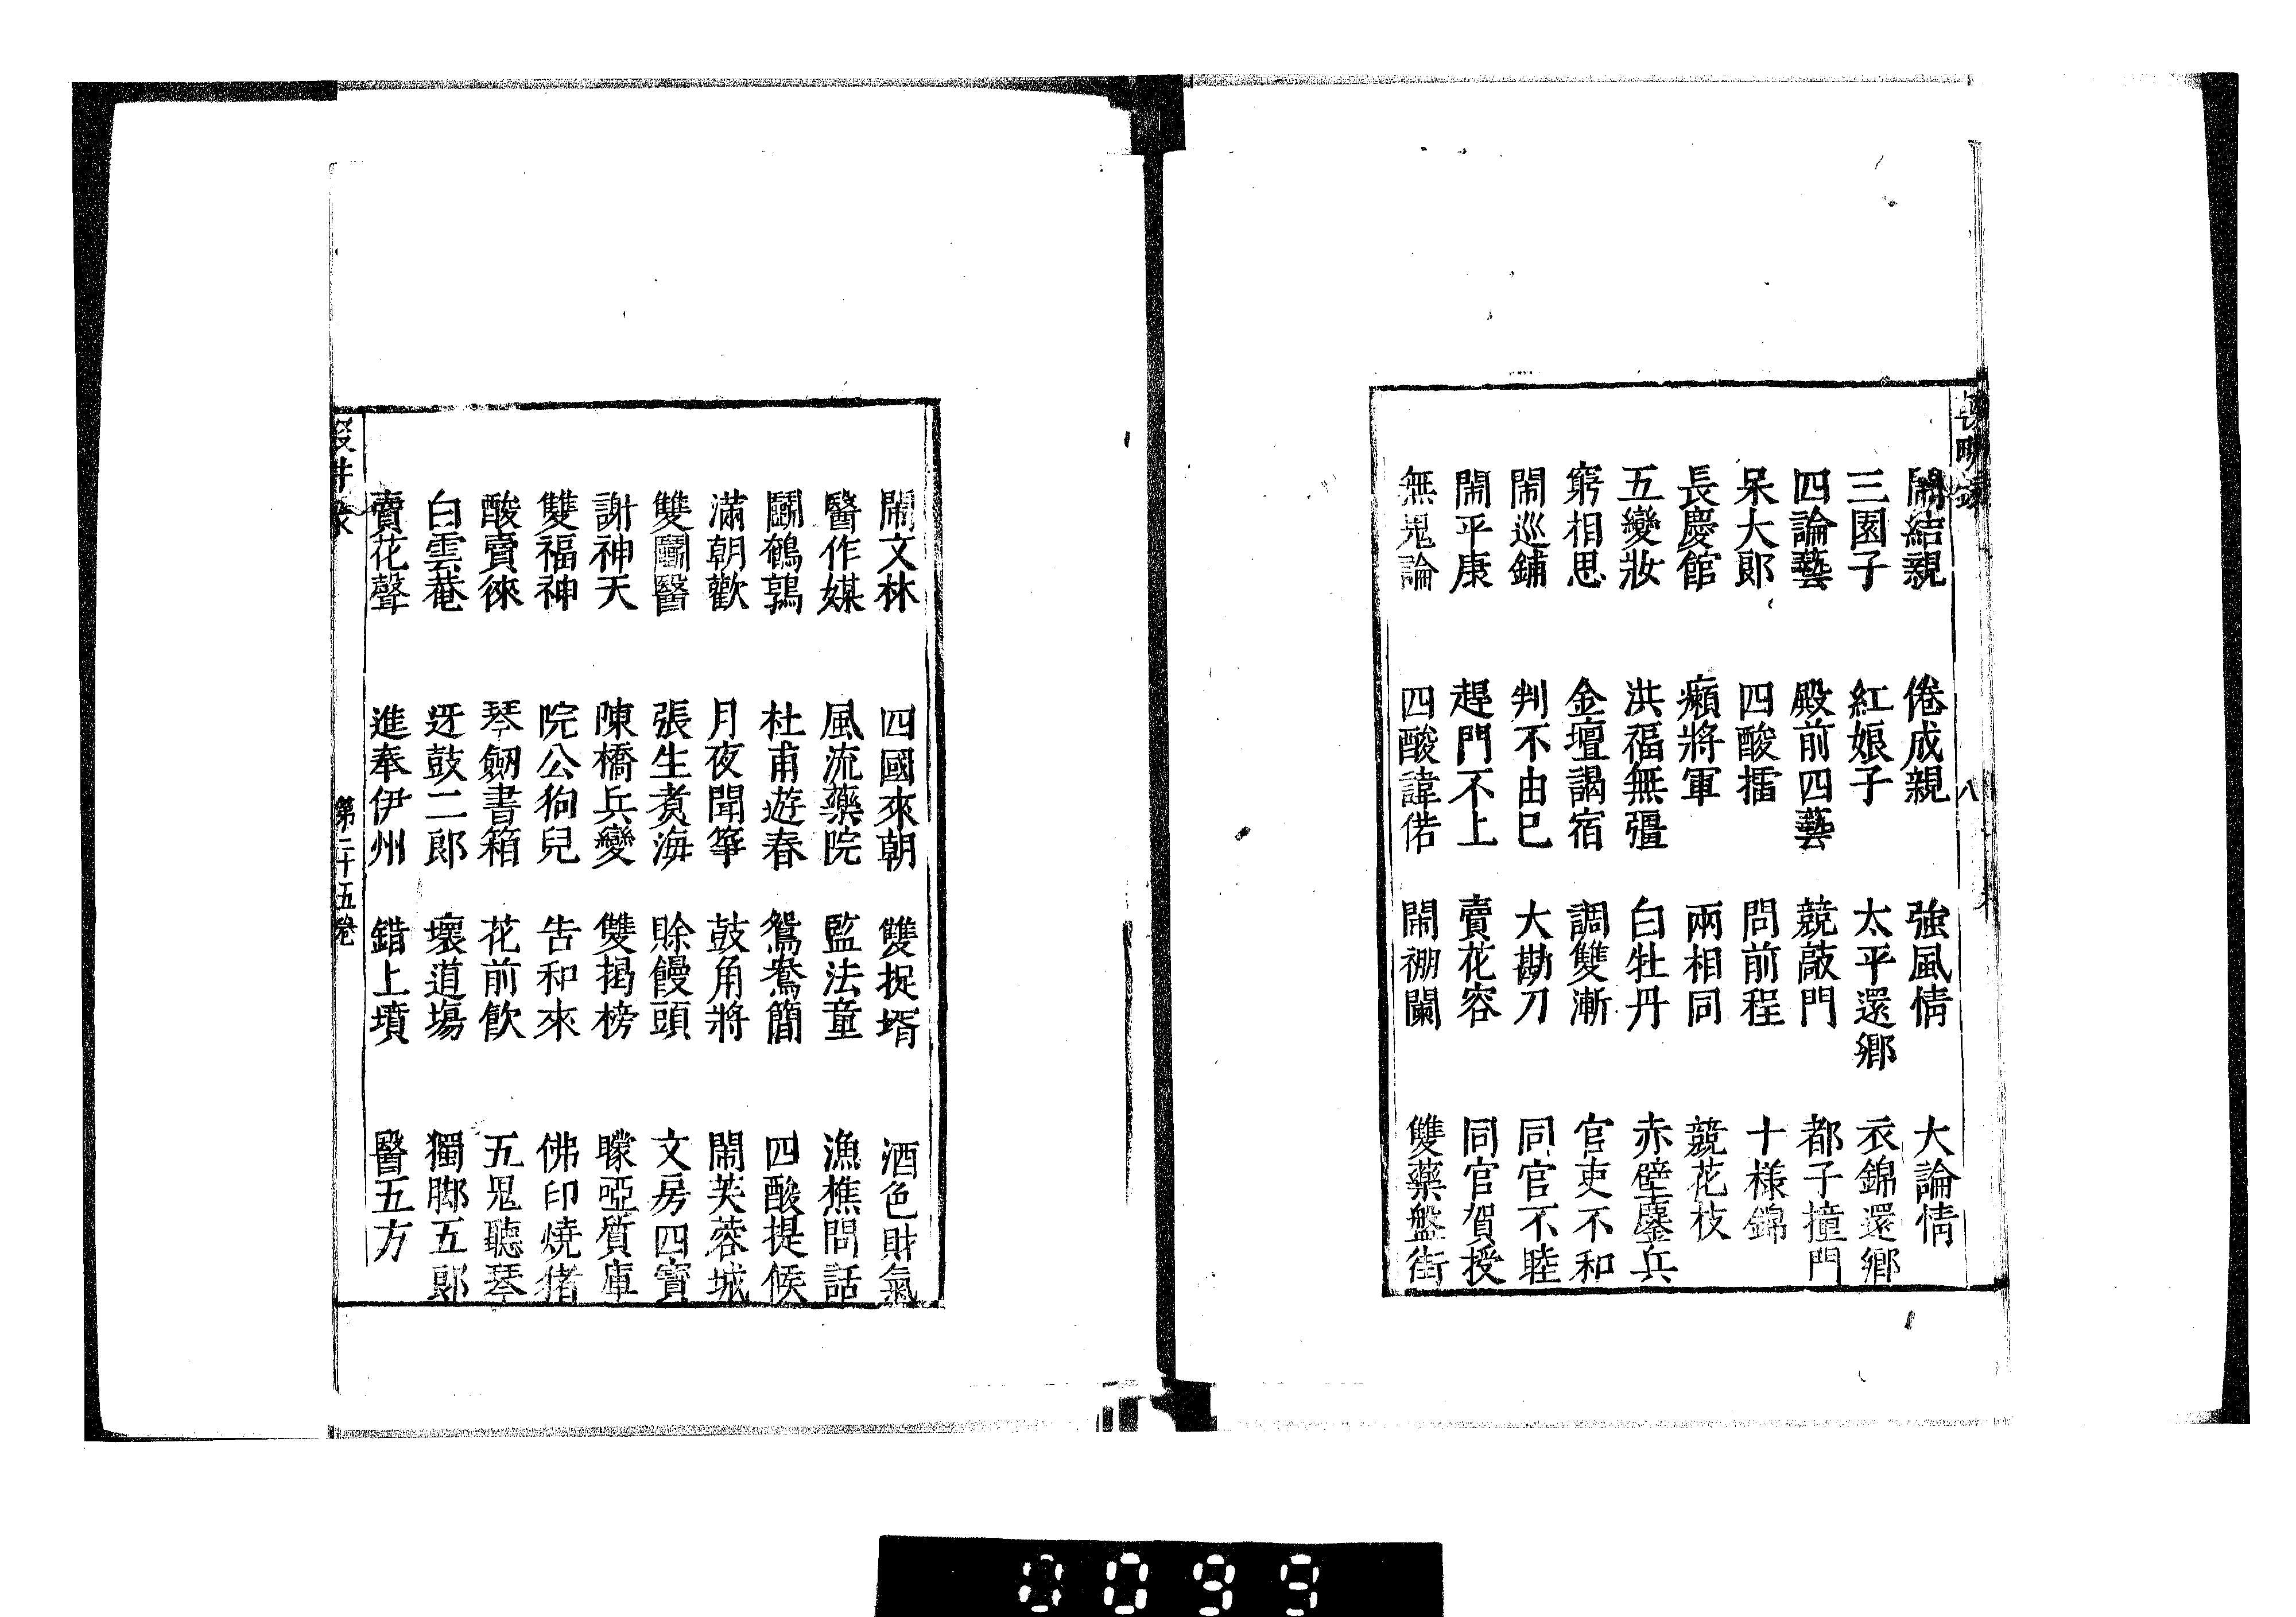 鬧結親 倦成親 強風情 大論情
三園子 紅娘子 太平還鄉 衣錦還鄉
四論藝 殿前四藝 競敲門 都子撞門
呆大郎 四酸擂 問前程 十樣錦
長慶館 癩將軍 兩相同 競花枝
五變妝 洪福無彊 白牡丹 赤壁鏖兵
窮相思 金壇謁宿 調雙漸 官吏不和
鬧巡鋪 判不由已 大勘刀 同官不睦
鬧平康 趕門不上 賣花容 同官賀授
無鬼論 四酸諱偌 鬧棚闌 雙藥盤街
鬧文林 四國來朝 雙捉壻 酒色財氣
醫作媒 風流藥院 監法童 漁樵問話
鬭鵪鶉 杜甫遊春 鴛鴦簡 四酸提候
滿朝歡 月夜聞箏 鼓角將 鬧芙蓉城
雙鬭醫 張生煑海 賒饅頭 文房四寳
謝神天 陳橋兵變 雙揭榜 矇啞質庫
雙福神 院公狗兒 告和來 佛印燒猪
酸賣徠 琴劒書箱 花前飲 五鬼聽琴
白雲菴 迓鼓二郎 壞道塲 獨脚五郎
賣花聲 進奉伊州 錯上墳 醫五方
第二十五卷
八
0099